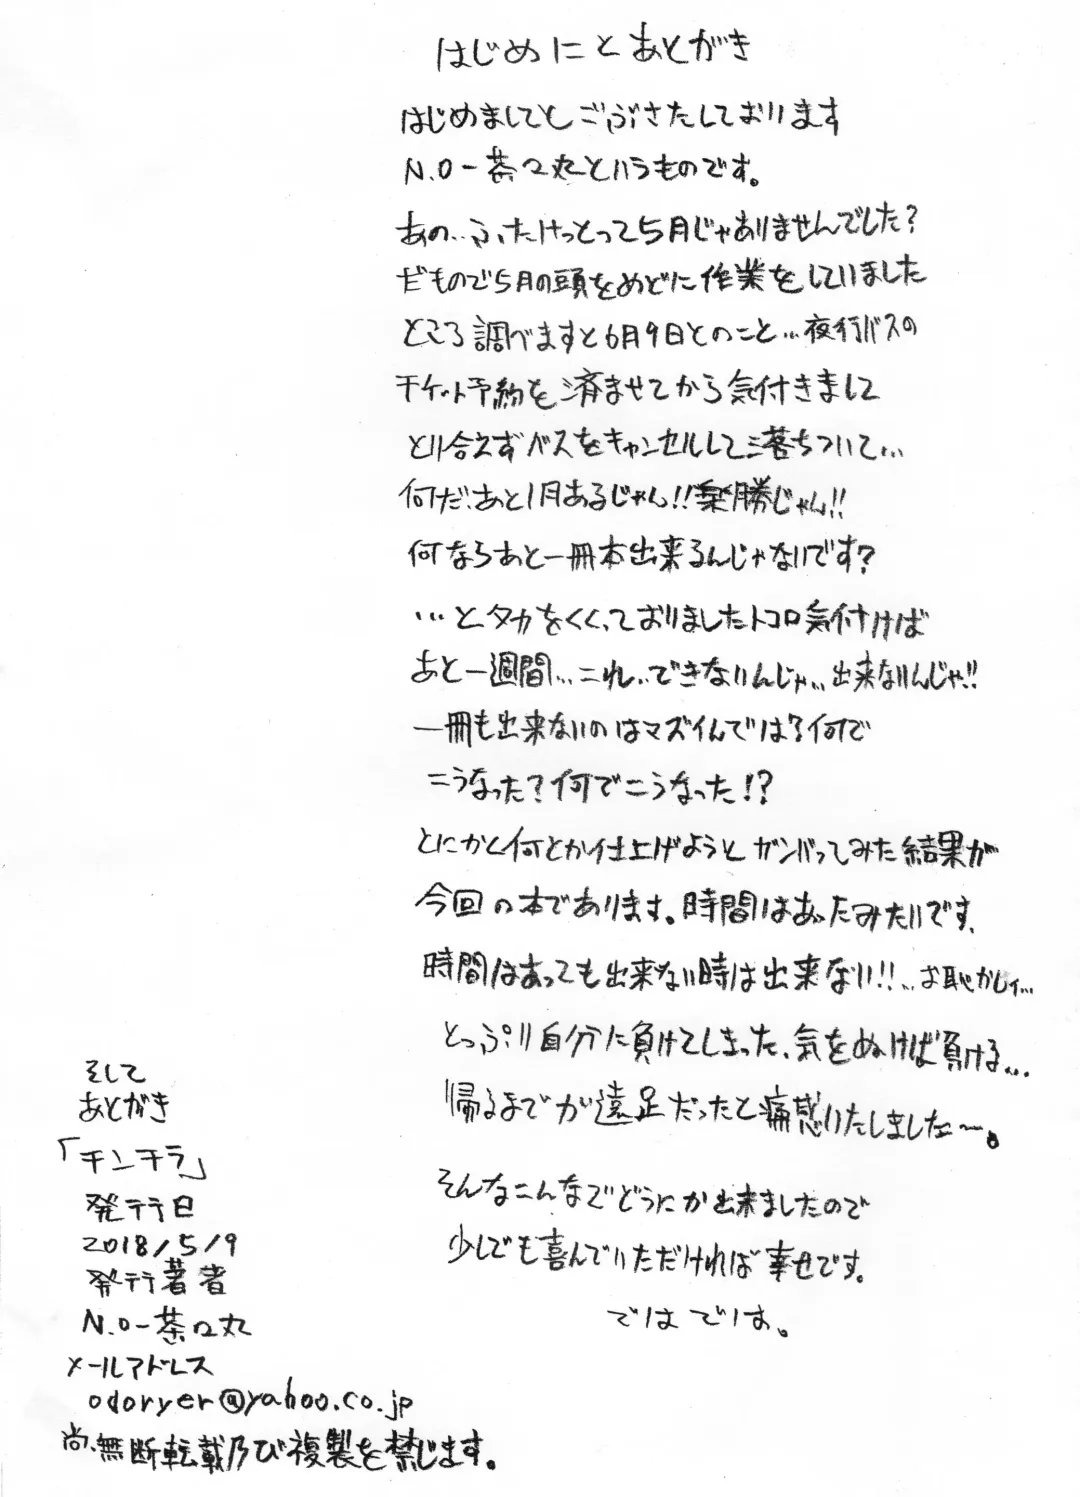 はじめにとあとがき
はじめましてとごぶさたしております
N.O-茶々丸というものです。
あの…ふたけっとって5月じゃありませんでした?
だもので5月の頭をめどに作業をしていました
ところ調べますと6月9日とのこと…夜行バスの
チケット予約を済ませてから気付きまして
とり合えずバスをキャンセルして落ちついて…
何だ、あと1月あるじゃん!!楽勝じゃん!!
何ならあと一冊本出来るんじゃないです?
…とタカをくくっておりましたトコロ気付けば
あと一週間…これ…できないんじゃ…出来ないんじゃ!!
一冊も出来ないのはマズイんでは?何で
こうなった?何でこうなった!?
とにかく何とか仕上げようとガンバってみた結果が
今回の本であります。時間はあったみたいです、
時間はあっても出来ない時は出来ない!!…お恥かしい…
とっぷり自分に負けてしまった、気をぬけば負ける…
帰るまでが遠足だったと痛感いたしました~。
そんなこんなでどうにか出来ましたので
少しでも喜んでいただければ幸せです。
ではでは。
そして
あとがき
「チンチラ」
発行日
2018/5/9
発行著者
N.O-茶々丸
メールアドレス
odoryer@yahoo.co.jp
尚、無断転載乃び複製を禁じます。